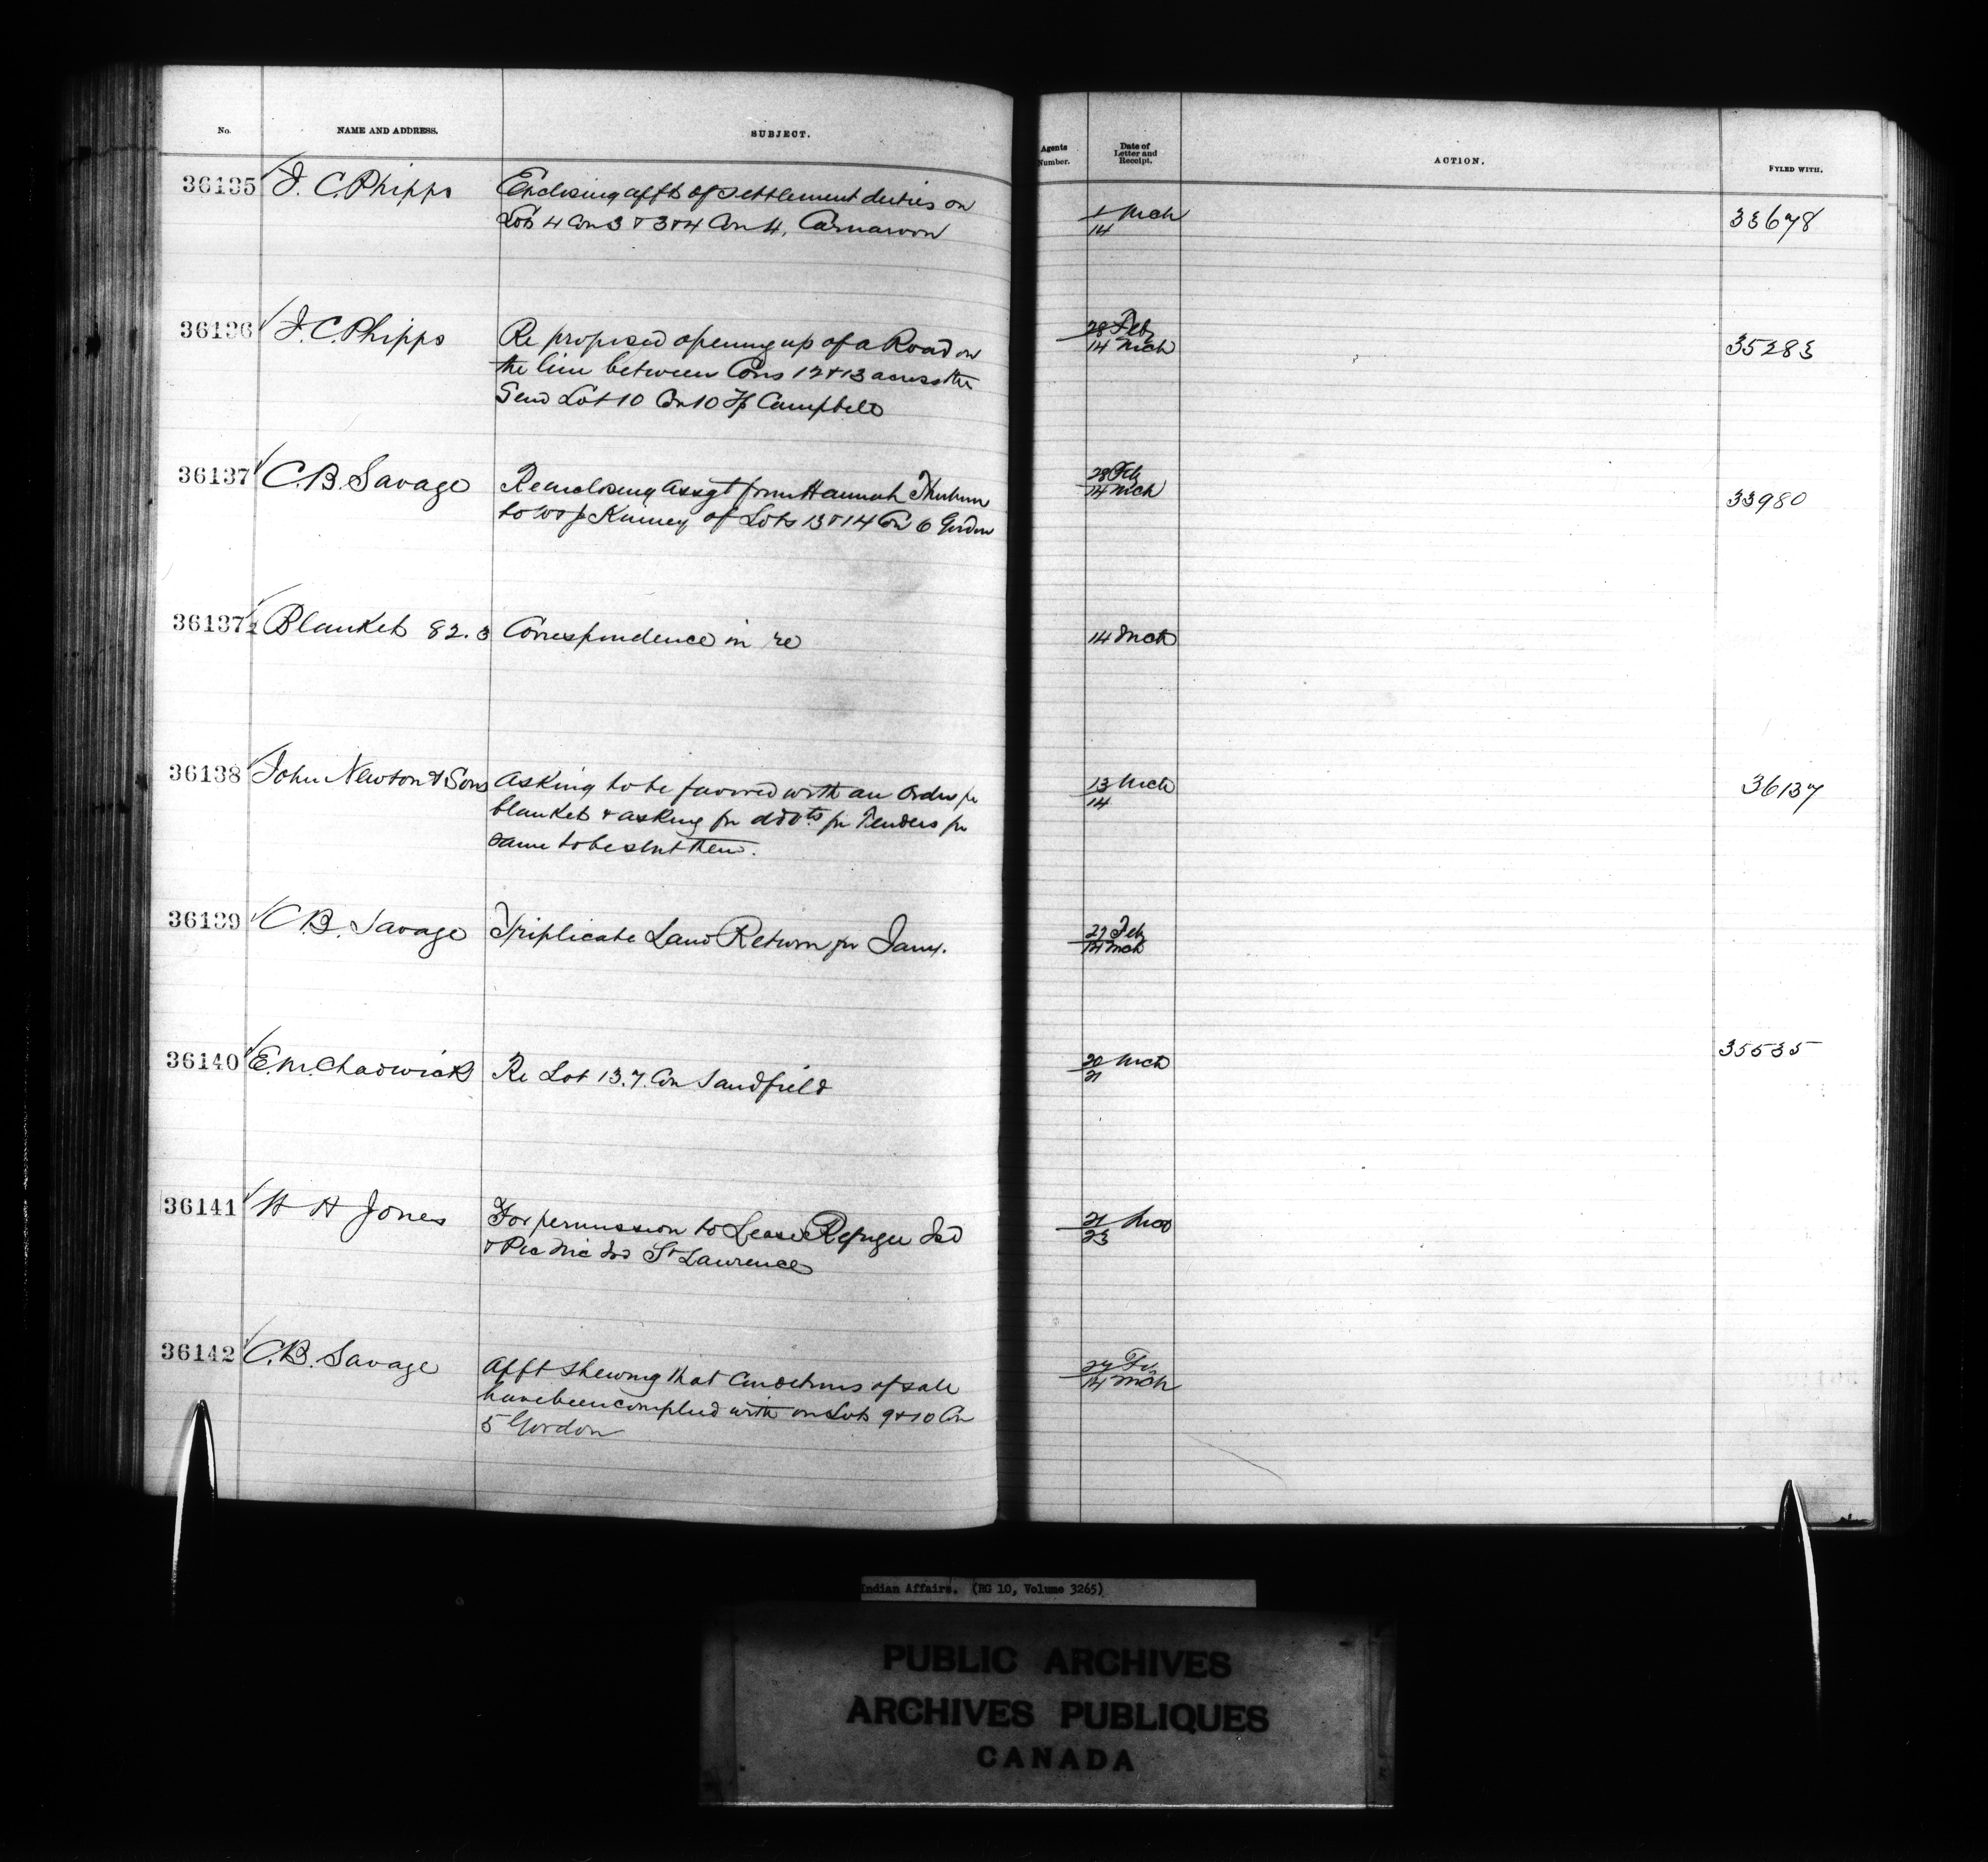 No. NAME AND ADDRESS. SUBJECT. Agents Number. Date of Letter and Receipt. ACTION. FYLED WITH.
36135 J. C. Phipps Enclosing affts of settlement duties on 1 Mch 33678
Lots 4 Con 3 & 3 & 4 Con 4, Carnarvon 14
36136 J. C. Phipps Re proposed opening up of a Road on 28 Feby 35283
the line between Cons 12 & 13 across the 14 Mch
Lot 10 Con 10 Tp Campbell
36137 C. B. Savage Re enclosing Assgt from Hannah 28 Feb 33980
to Kinney of Lots 13 & 14 Con 6 Gordon 14 Mch
36137½ Blankets 82.3 Correspondence in re 14 Mch
36138 John Newton & Sons Asking to be favored with an order for 13 Mch 36137
blankets & asking for advts for Tenders for 14
same to be sent them.
36139 C. B. Savage Triplicate Land Return for Jany. 27 Feb
14 Mch
36140 E. M. Chadwick Re Lot 13.7. Con Sandfield 20 Mch 35535
21
36141 H H Jones For permission to Lease Refugee Isd 21 Mch
& Pic Nic Isd St Lawrence 23
36142 C. B. Savage Afft shewing that Conditions of sale 27 Feb
have been complied with on Lots 9 & 10 Con 14 Mch
5 Gordon
Indian Affairs. (RG 10, Volume 3265)
PUBLIC ARCHIVES
ARCHIVES PUBLIQUES
CANADA